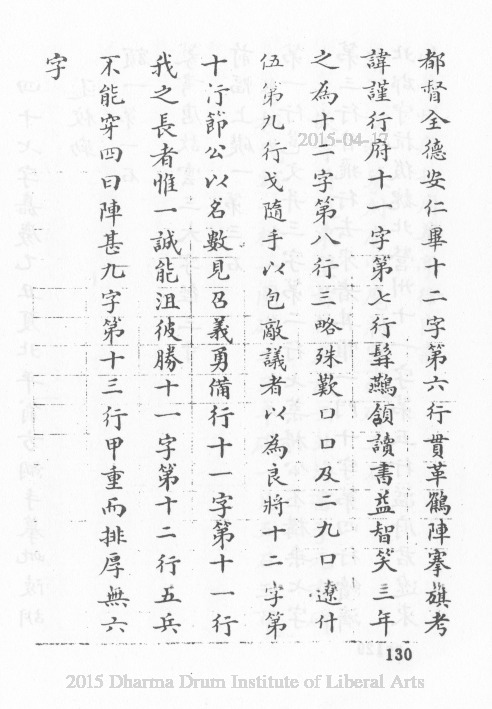 都督全德安仁畢十二字第六行貫革鸛陣搴旗考
諱謹行府十一字第七行髯鷰頷讀書益智笑三年
之為十二字第八行三略殊歎口口及二九口遼什
伍第九行戈隨手以包敵議者以為良將十二字第
十行節公以名數見召義勇備行十一字第十一行
我之長者惟一誠能沮彼勝十一字第十二行五兵
不能穿四曰陣甚九字第十三行甲重而排厚無六
字
2015-04-17
130
2015 Dharma Drum Institute of Liberal Arts